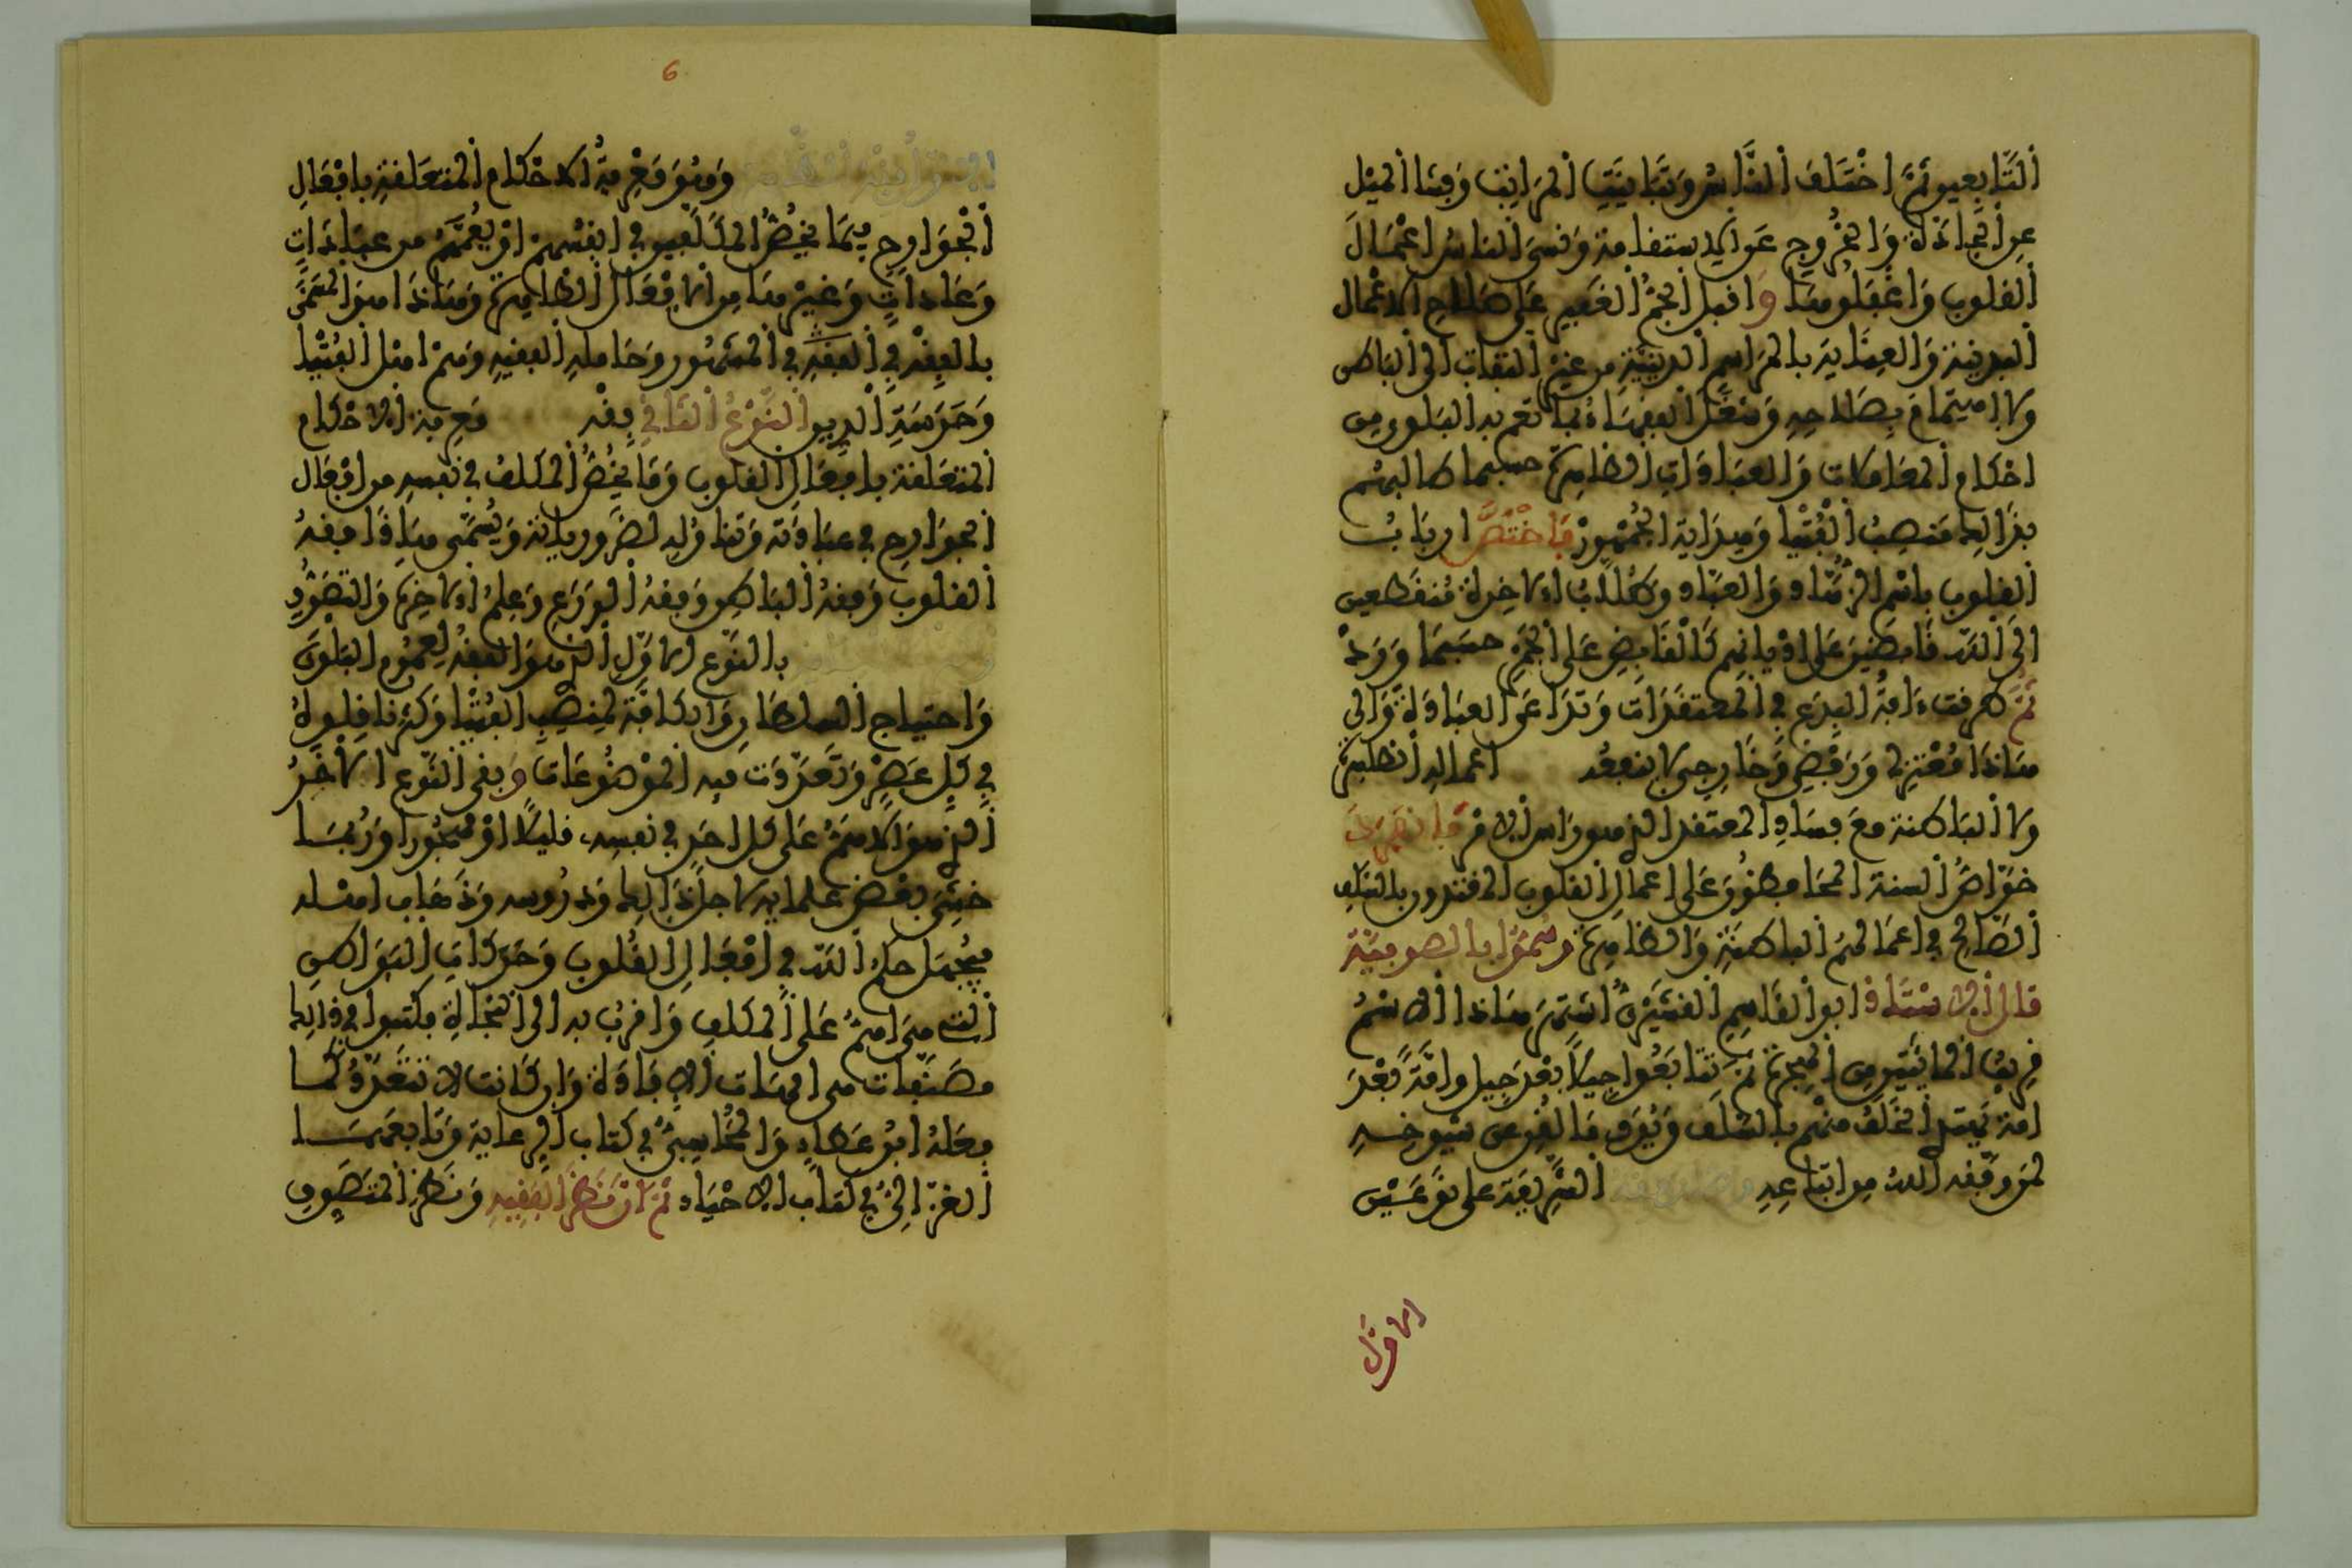 التابعين ثم اختلف الناس وتباينت المراتب وفشا الميل
عن الجادة والخروج عن الاستقامة ونسي الناس اعمال
القلوب واغفلوها واقبل الجم الغفير على صلاح الاعمال
البدنية والعناية بالمراسم الدينية من غير التفات الى الباطن
ولا اهتمام بصلاحه وشغل الفقهاء بما تعم به البلوى من
احكام المعاملات والعبادات الظاهرة حسبما طالبهم
بذالك منصب الفتيا وهداية الجمهور فاختص ارباب
القلوب باسم الزهاد والعباد وطلاب الاخرة منقطعين
الى الله قابضين على اديانهم كالقابض على الجمر حسبما ورد
ثم طرقت ءافة البدع في المعتقدات وتداعى العبادة والى
هاذا معتزلي ورفضي وخارجي لا ينفعه اعماله الظاهرة
ولا الباطنة مع فساد المعتقد الذي هو راس الامر فانفرد
خواص السنة المحافظون على اعمال القلوب المقتدون بالسلف
الصالح في اعمالهم الباطنة والظاهرة وسموا بالصوفية
قال الاستاذ ابو القاسم القشيري اشتهر هاذا الاسم
قريب المائتين من الهجرة ثم تتابعوا جيلا بعد جيل وامة بعد
امة يهتدي الخلف منهم بالسلف ويؤدي ما لقن عن شيوخه
لمن وفقه الله من اتباعه الشريعة على نوعين
الاول
6
وهو معرفة الاحكام المتعلقة بافعال
الجوارح فيما يخص المكلفين في انفسهم او يعمهم من عبادات
وعادات وغيرها من الافعال الظاهرة وهاذا هو المسمى
بالفقه في المشهور وحامله الفقيه وهم اهل الفتيا
وحرسة الدين النوع الثاني فقه معرفة الاحكام
المتعلقة بافعال القلوب وما يخص المكلف في نفسه من افعال
الجوارح في عبادته وتناوله لضرورياته ويسمى هاذا فقه
القلوب وفقه الباطن وفقه الورع وعلم الاخرة والتصوف
بالنوع الاول الذي هو الفقه لعموم البلوى
واحتياج السلطان والكافة لمنصب الفتيا وكثر ناقلوه
في كل عصر وتعددت فيه الموضوعات وبقي النوع الاخر
الذي هو الاهم على كل احد في نفسه قليلا او مهجورا وربما
خشي بعض علمايه لاجل ذالك ودروسه وذهاب اهله
فيجهل حكم الله في افعال القلوب وحركات البواطن
التي هي اهم على المكلف واقرب به الى النجاة فكتبوا في ذالك
مصنفات هي امهات الافادة وان كانت لا تتعدد كما
فعله ابن عطاء والمحاسبي في كتاب الرعاية وتابعهما
الغزالي في كتاب الاحياء ثم ان نظر الفقيه ونظر المتصوف